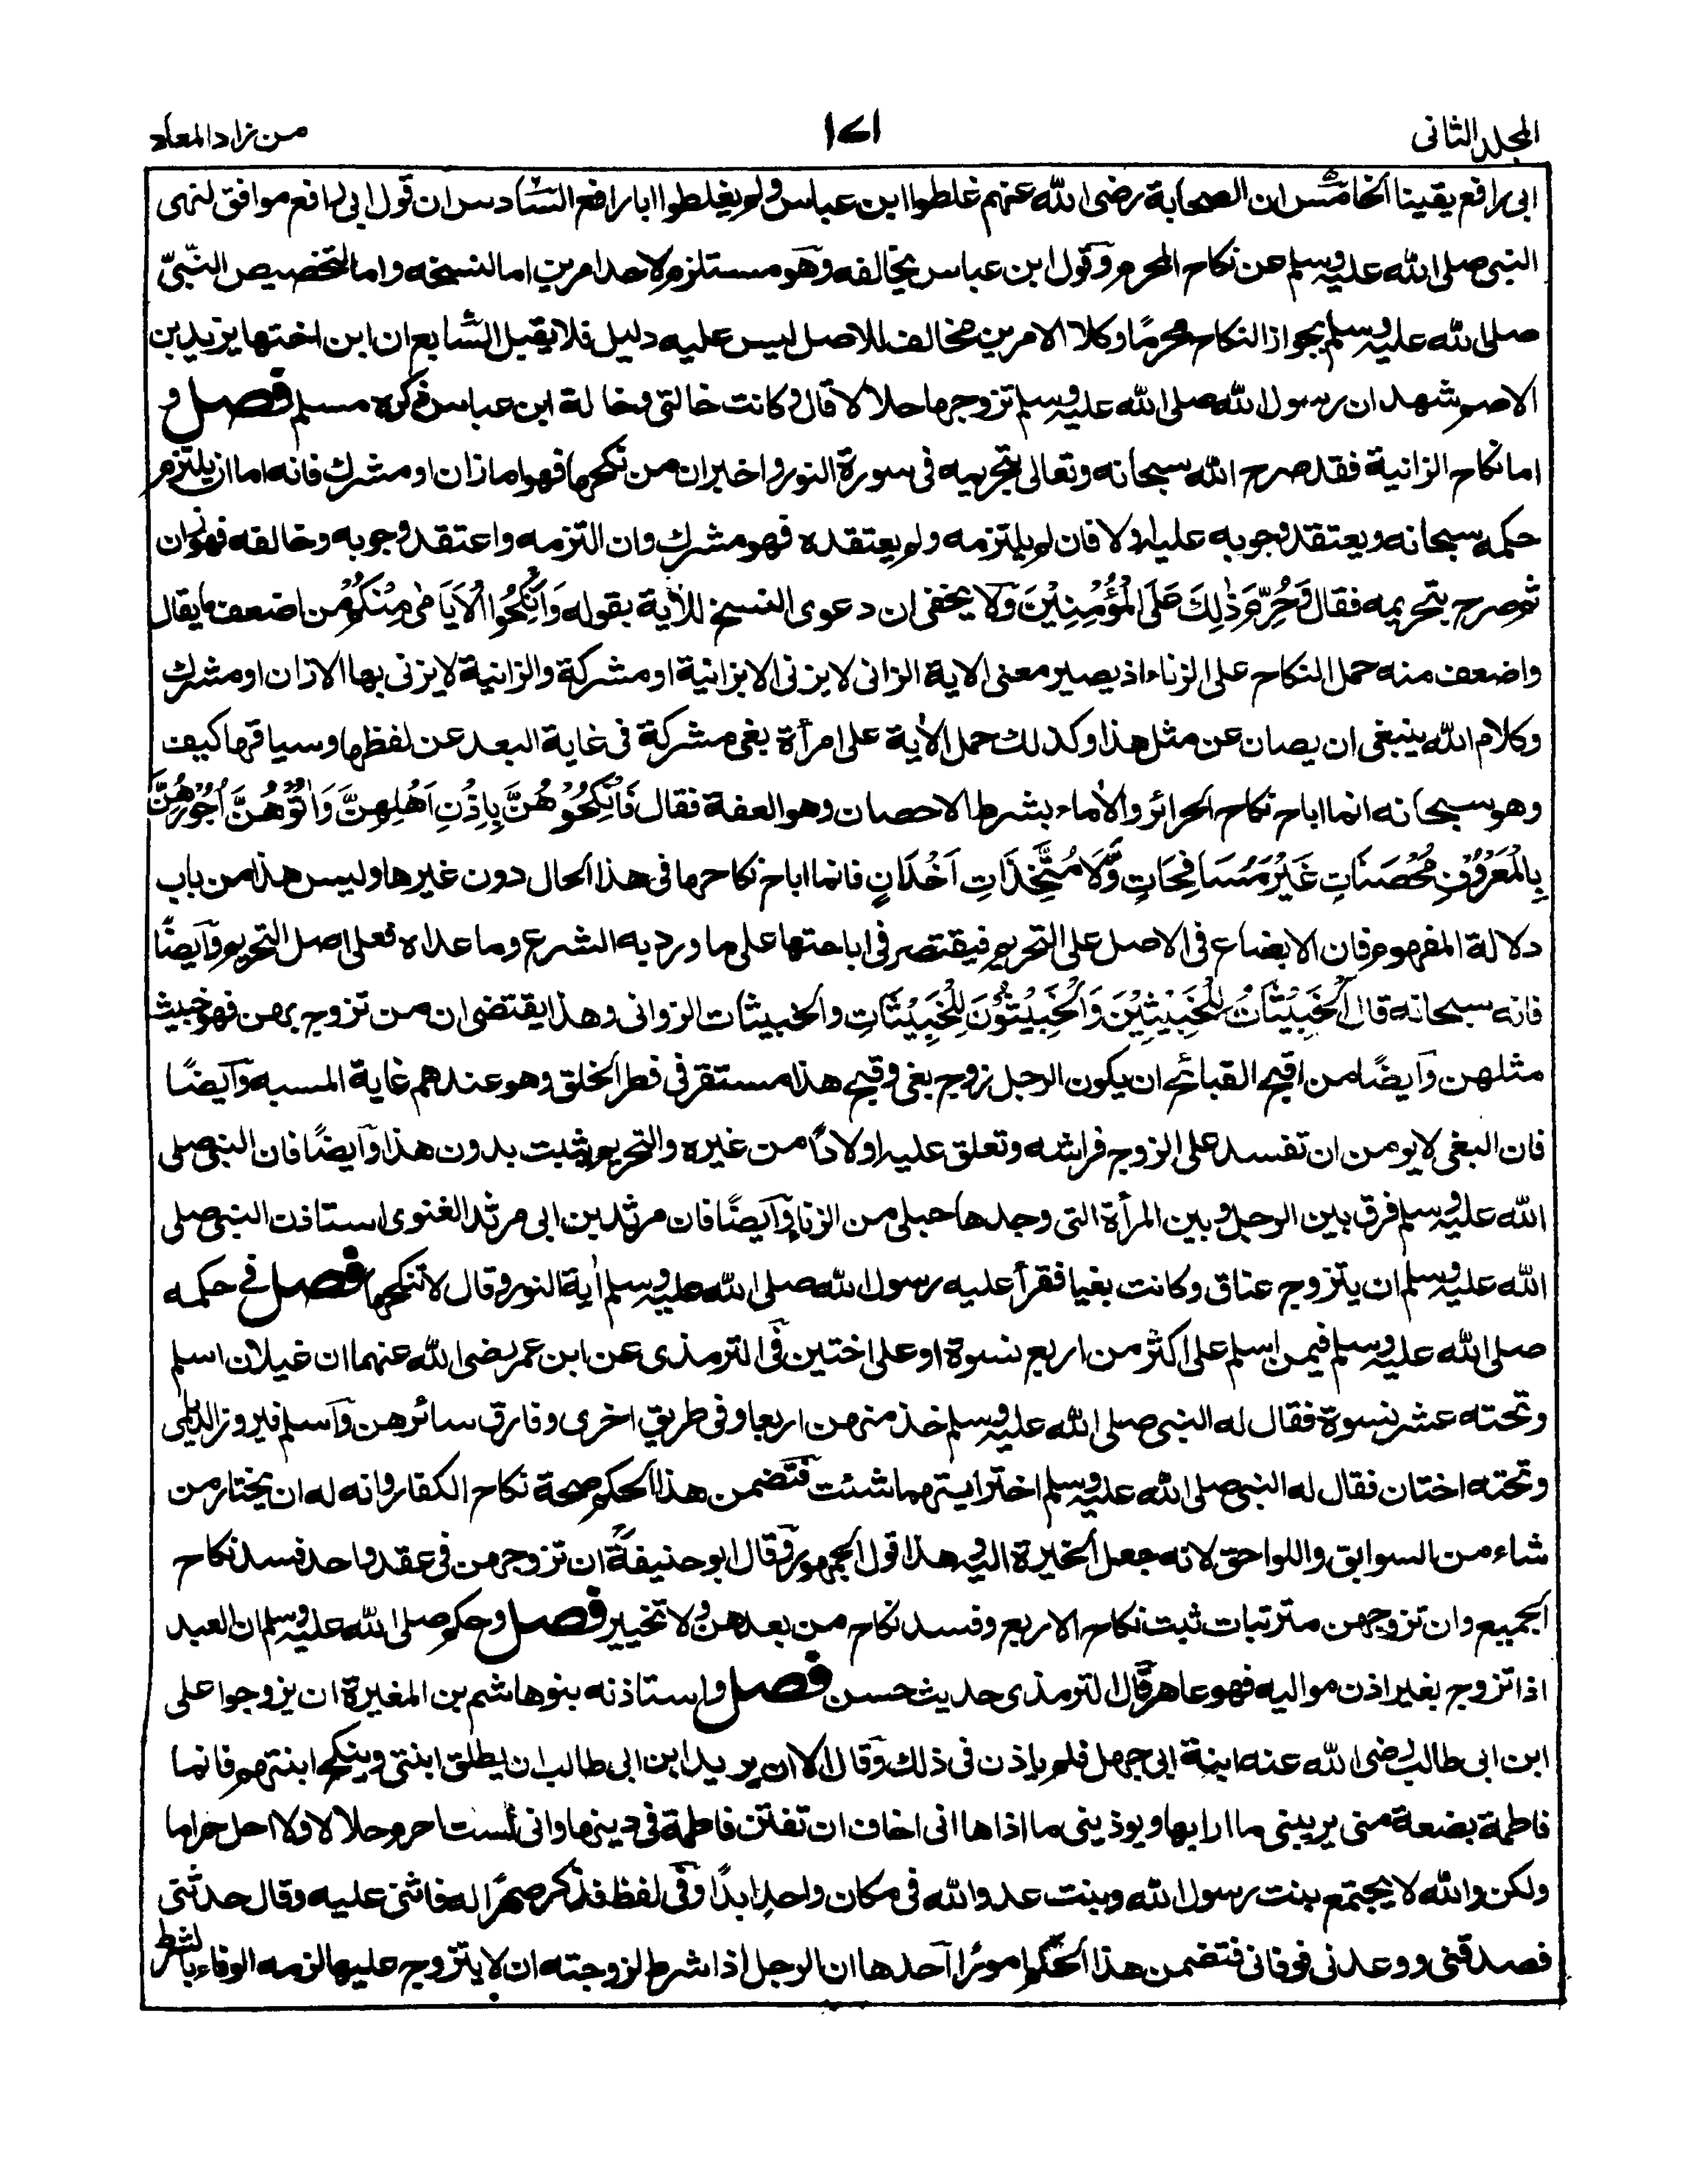 المجلد الثانی
۱۷۱
من زاد المعاد
ابی رافع یقینا الخامس ان الصحابة رضی الله عنهم غلطوا ابن عباس ولم یغلطوا ابا رافع السادس ان قول ابی رافع موافق لنهی
النبی صلی الله علیه وسلم عن نکاح المحرم وقول ابن عباس یخالفه وهو مستلزم لاحد امرین اما لنسخه واما لتخصیص النبیّ
صلی الله علیه وسلم بجواز النکاح محرمًا وکلا الامرین مخالف للاصل لیس علیه دلیل فلا یقبل السّابع ان ابن اختها یزید بن
الاصم شهد ان رسول الله صلی الله علیه وسلم تزوجها حلالا قال وکانت خالتی وخالة ابن عباس ذکره مسلم فصل و
اما نکاح الزانیة فقد صرح الله سبحانه وتعالی بتحریمه فی سورة النور واخبر ان من نکحها فهو اما زان او مشرك فانه اما ان یلتزم
حکمه سبحانه ویعتقد وجوبه علیه اولا فان لم یلتزمه ولم یعتقده فهو مشرك وان التزمه واعتقد وجوبه وخالفه فهو زان
ثم صرح بتحریمه فقال وَحُرِّمَ ذٰلِكَ عَلَی الْمُؤْمِنِیْنَ وَلا یخفی ان دعوی النسخ للاٰیة بقوله وَاَنْکِحُوا الْاَیَامٰی مِنْکُمْ من اضعف ما یقال
واضعف منه حمل النکاح علی الزناء اذ یصیر معنی الایة الزانی لا یزنی الا بزانیة او مشرکة والزانیة لا یزنی بها الا زان او مشرك
وکلام الله ینبغی ان یصان عن مثل هذا وکذلك حمل الاٰیة علی امرأة بغی مشرکة فی غایة البعد عن لفظها وسیاقها کیف
وهو سبحانه انما اباح نکاح الحرائر والاٰماء بشرط الاحصان وهو العفة فقال فَانْکِحُوْهُنَّ بِاِذْنِ اَهْلِهِنَّ وَاٰتُوْهُنَّ اُجُوْرَهُنَّ
بِالْمَعْرُوْفِ مُحْصَنَاتٍ غَیْرَ مُسَافِحَاتٍ وَّلَا مُتَّخِذَاتِ اَخْدَانٍ فانما اباح نکاحها فی هذا الحال دون غیرها ولیس هذا من باب
دلالة المفهوم فان الابضاع فی الاصل علی التحریم فیقتصر فی اباحتها علی ما ورد به الشرع وما عداه فعلی اصل التحریم وآیضًا
فانه سبحانه قال اَلْخَبِیْثَاتُ لِلْخَبِیْثِیْنَ وَالْخَبِیْثُوْنَ لِلْخَبِیْثَاتِ والخبیثات الزوانی وهذا یقتضی ان من تزوج بهن فهو خبیث
مثلهن وآیضًا من اقبح القبائح ان یکون الرجل زوج بغی وقبح هذا مستقر فی فطر الخلق وهو عندهم غایة المسبه وآیضًا
فان البغی لا یومن ان تفسد علی الزوج فراشه وتعلق علیه اولادًا من غیره والتحریم یثبت بدون هذا وآیضًا فان النبی صلی
الله علیه وسلم فرق بین الرجل وبین المرأة التی وجدها حبلی من الزنا وآیضًا فان مرثد بن ابی مرثد الغنوی استاذن النبی صلی
الله علیه وسلم ان یتزوج عناق وکانت بغیا فقرأ علیه رسول الله صلی الله علیه وسلم اٰیة النور وقال لا تنکحها فصل فی حکمه
صلی الله علیه وسلم فیمن اسلم علی اکثر من اربع نسوة او علی اختین فی الترمذی عن ابن عمر رضی الله عنهما ان غیلان اسلم
وتحته عشر نسوة فقال له النبی صلی الله علیه وسلم خذ منهن اربعا وفی طریق اخری وفارق سائرهن وآسلم فیروز الدیلمی
وتحته اختان فقال له النبی صلی الله علیه وسلم اختر ایتهما شئت فتضمن هذا الحکم صحة نکاح الکفار وانه له ان یختار من
شاء من السوابق واللواحق لانه جعل الخیرة الیه وهذا قول الجمهور وقال ابو حنیفة ان تزوجهن فی عقد واحد فسد نکاح
الجمیع وان تزوجهن مترتبات ثبت نکاح الاربع وفسد نکاح من بعدهن ولا تخییر فصل وحکم صلی الله علیه وسلم ان العبد
اذا تزوج بغیر اذن موالیه فهو عاهر قال الترمذی حدیث حسن فصل واستاذنه بنو هاشم بن المغیرة ان یزوجوا علی
ابن ابی طالب رضی الله عنه ابنة ابی جهل فلم یاذن فی ذلك وقال الا ان یرید ابن ابی طالب ان یطلق ابنتی وینکح ابنتهم فانما
فاطمة بضعة منی یریبنی ما ارابها ویوذینی ما اذاها انی اخاف ان تفتن فاطمة فی دینها وانی لست احرم حلالا ولا احل حراما
ولکن والله لا یجتمع بنت رسول الله وبنت عدو الله فی مکان واحد ابدًا وفی لفظ فذکر صهرًا له فاثنی علیه وقال حدثنی
فصدقنی ووعدنی فوفانی فتضمن هذا الحکم امورًا آحدها ان الرجل اذا شرط لزوجته ان لا یتزوج علیها لزمه الوفاء بالشرط